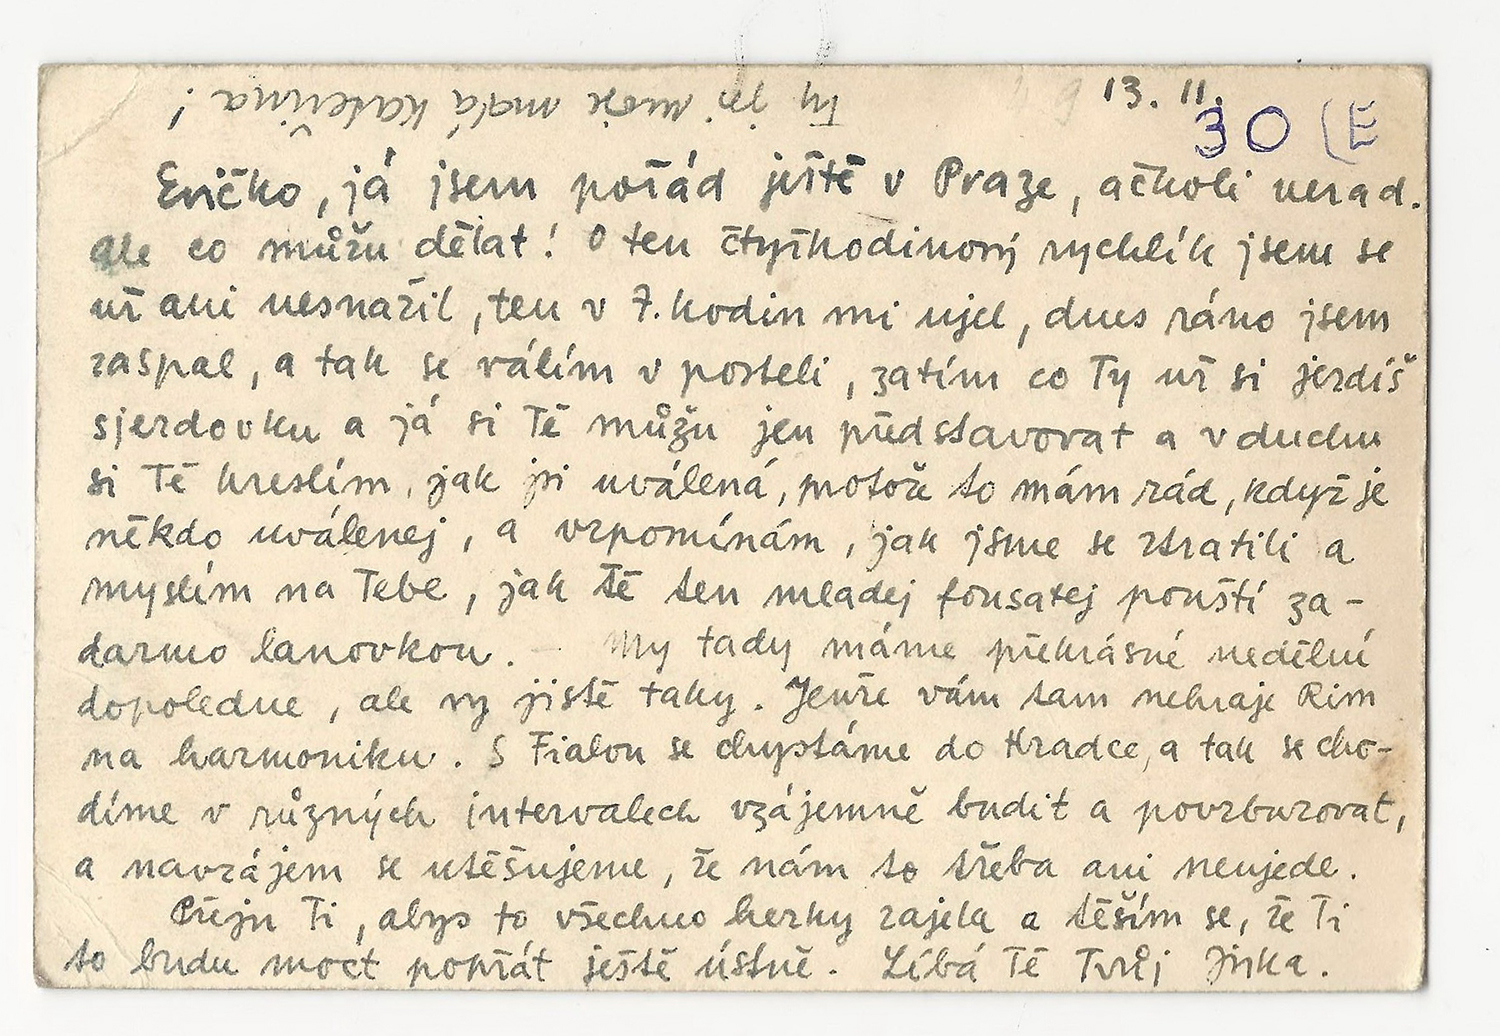 13. 11.
30 (E
Ty jsi moje malá Kateřina!
Evičko, já jsem pořád ještě v Praze, ačkoli nerad.
Ale co můžu dělat! O ten čtyřhodinový rychlík jsem se
už ani nesnažil, ten v 7. hodin mi ujel, dnes ráno jsem
zaspal, a tak se válím v posteli, zatím co Ty už si jezdíš
sjezdovku a já si Tě můžu jen představovat a v duchu
si Tě kreslím, jak jsi uválená, protože to mám rád, když je
někdo uválenej, a vzpomínám, jak jsme se ztratili a
myslím na Tebe, jak tě ten mladej fousatej pouští za-
darmo lanovkou. – My tady máme překrásné nedělní
dopoledne, ale vy jistě taky. Jenže vám tam nehraje Rim
na harmoniku. S Fialou se chystáme do Hradce, a tak se cho-
díme v různých intervalech vzájemně budit a povzbuzovat,
a navzájem se utěšujeme, že nám to třeba ani neujede.
Přeju Ti, abys to všechno hezky zajela a těším se, že Ti
to budu moct popřát ještě ústně. Líbá Tě Tvůj Jirka.